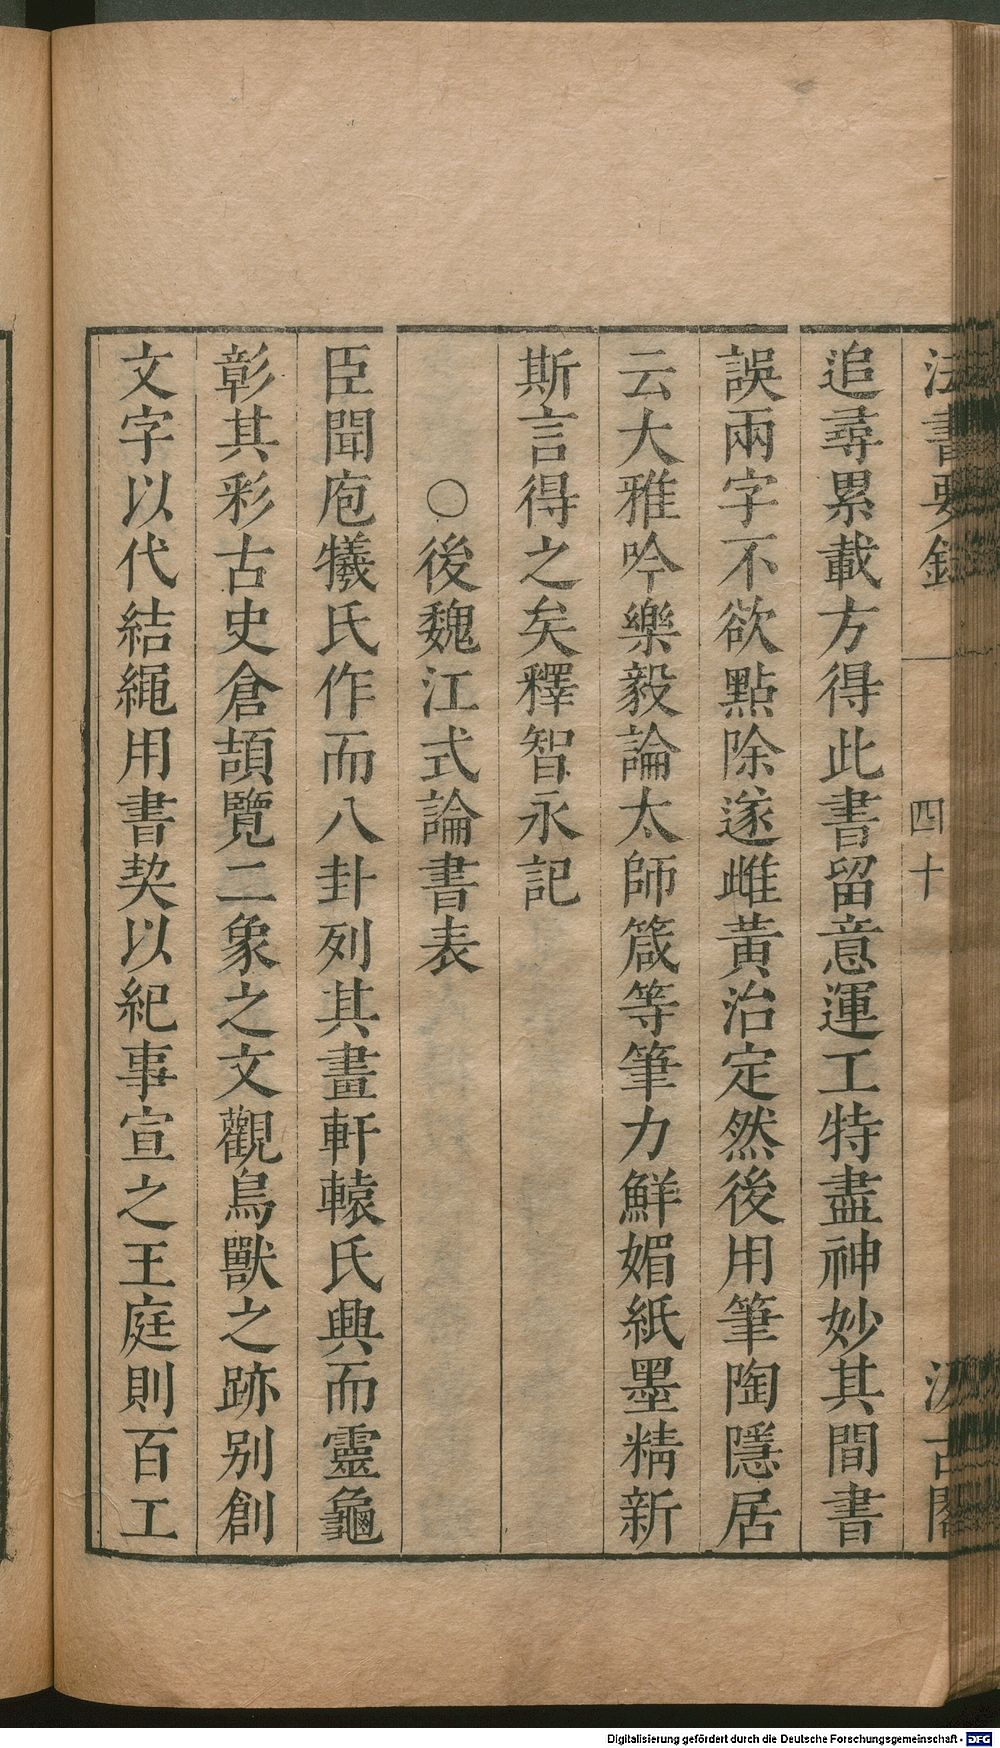 法書要錄
四十
汲古閣
追尋累載方得此書留意運工特盡神妙其間書
誤兩字不欲點除遂雌黄治定然後用筆陶隱居
云大雅吟樂毅論太師箴等筆力鮮媚紙墨精新
斯言得之矣釋智永記
○後魏江式論書表
臣聞庖犧氏作而八卦列其畫軒轅氏興而靈龜
彰其彩古史倉頡覽二象之文觀鳥獸之跡別創
文字以代結繩用書契以紀事宣之王庭則百工
Digitalisierung gefördert durch die Deutsche Forschungsgemeinschaft - DFG